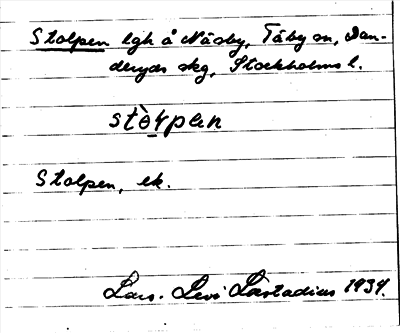 Stolpen lgh å Näsby, Täby sn, Dan-
deryds skg, Stockholms l.
stò̱ɫpen
Stolpen, ek.
Lars. Levi Læstadius 1934.